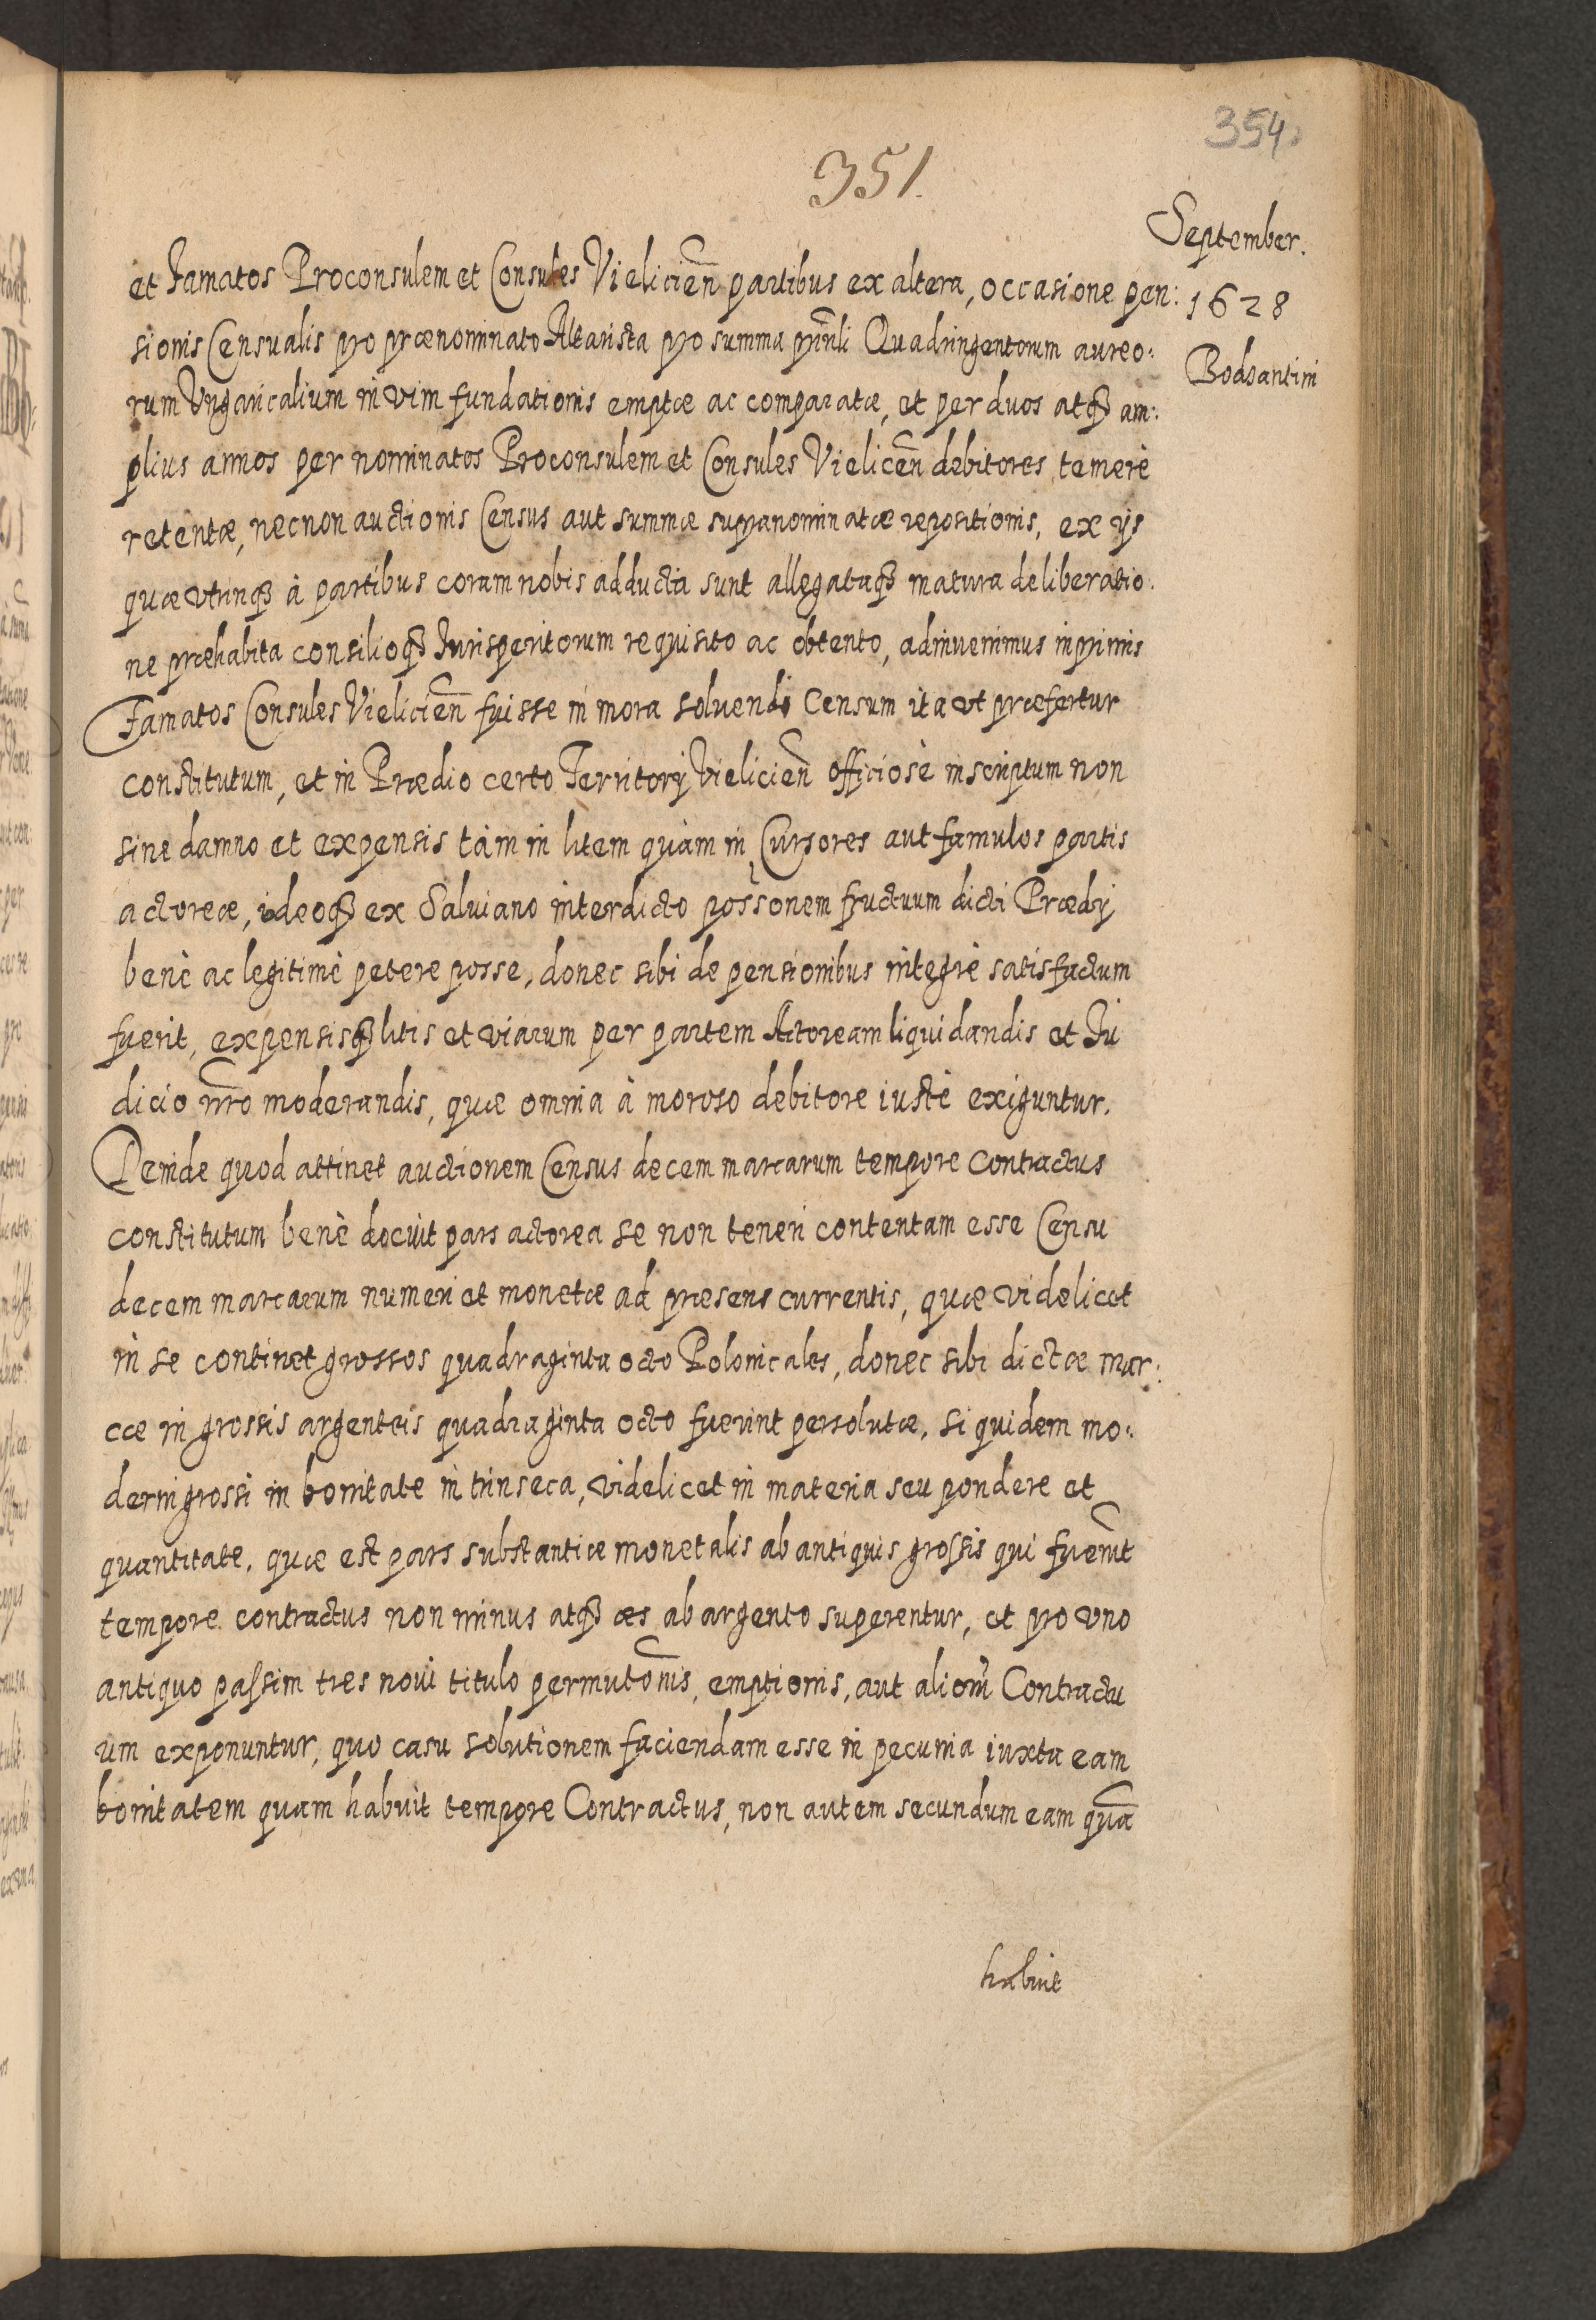 354.
351.
September.
1628
Bodzantini
et Famatos Proconsulem et Consules Vielicien̄ partibus ex altera, occasione pen:
sionis Censualis pro prænominato Altarista pro summa prin̄li Quadringentorum aureo:
rum Vngaricalium in vim fundationis emptæ ac comparatæ, et per duos atq̃ am:
plius annos per nominatos Proconsulem et Consules Vielicen̄ debitores temerè
retentæ, necnon auctionis Census aut summæ supranominatæ repositionis, ex ijs
quæ vtrinq̃ à partibus coram nobis adducta sunt allegataq̃ matura deliberatio:
ne præhabita consilioq̃ Jurisperitorum requisito ac obtento, adinuenimus inprimis
Famatos Consules Vielicien̄ fuisse in mora soluendi Censum ita vt præfertur
constitutum, et in Prædio certo Territorij Vielicien̄ officiosè inscriptum non
sine damno et expensis tàm in litem quàm in Cursores aut famulos partis
actoreæ, ideoq̃ ex Salviano interdicto possōnem fructuum dicti Prædij
benè ac legitimè petere posse, donec sibi de pensionibus integrè satisfactum
fuerit, expensisq̃ litis et viarum per partem Actoream liquidandis et Ju
dicio n̄ro moderandis, quæ omnia à moroso debitore iustè exiguntur.
Deinde quod attinet auctionem Census decem marcarum tempore contractus
constitutum benè docuit pars actorea se non teneri contentam esse Censu
decem marcarum numeri et monetæ ad præsens currentis, quæ videlicet
in se continet grossos quadraginta octo Polonicales, donec sibi dictæ mar:
cæ in grossis argenteis quadraginta octo fuerint persolutæ, siquidem mo:
derni grossi in bonitate intrinseca, videlicet in materia seu pondere et
quantitate, quæ est pars substantiæ monetalis ab antiquis grossis qui fuerūt
tempore contractus non minus atq̃ æs ab argento superentur, et pro vno
antiquo passim tres noui titulo permutōnis, emptionis, aut alior̄ Contractu
um exponuntur, quo casu solutionem faciendam esse in pecunia iuxta eam
bonitatem quam habuit tempore Contractus, non autem secundum eam quā
habuit